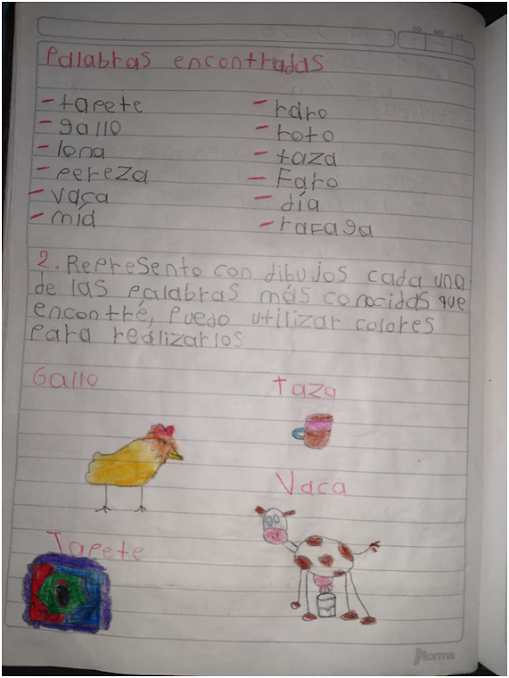 Palabras encontradas
- tapete
- gallo
- lona
- pereza
- vaca
- mía
- raro
- roto
- taza
- Faro
- día
- rafaga
2. Represento con dibujos cada una
de las palabras más conocidas que
encontré, Puedo utilizar colores
para realizarlos
Gallo
Taza
Vaca
Tapete
Norma